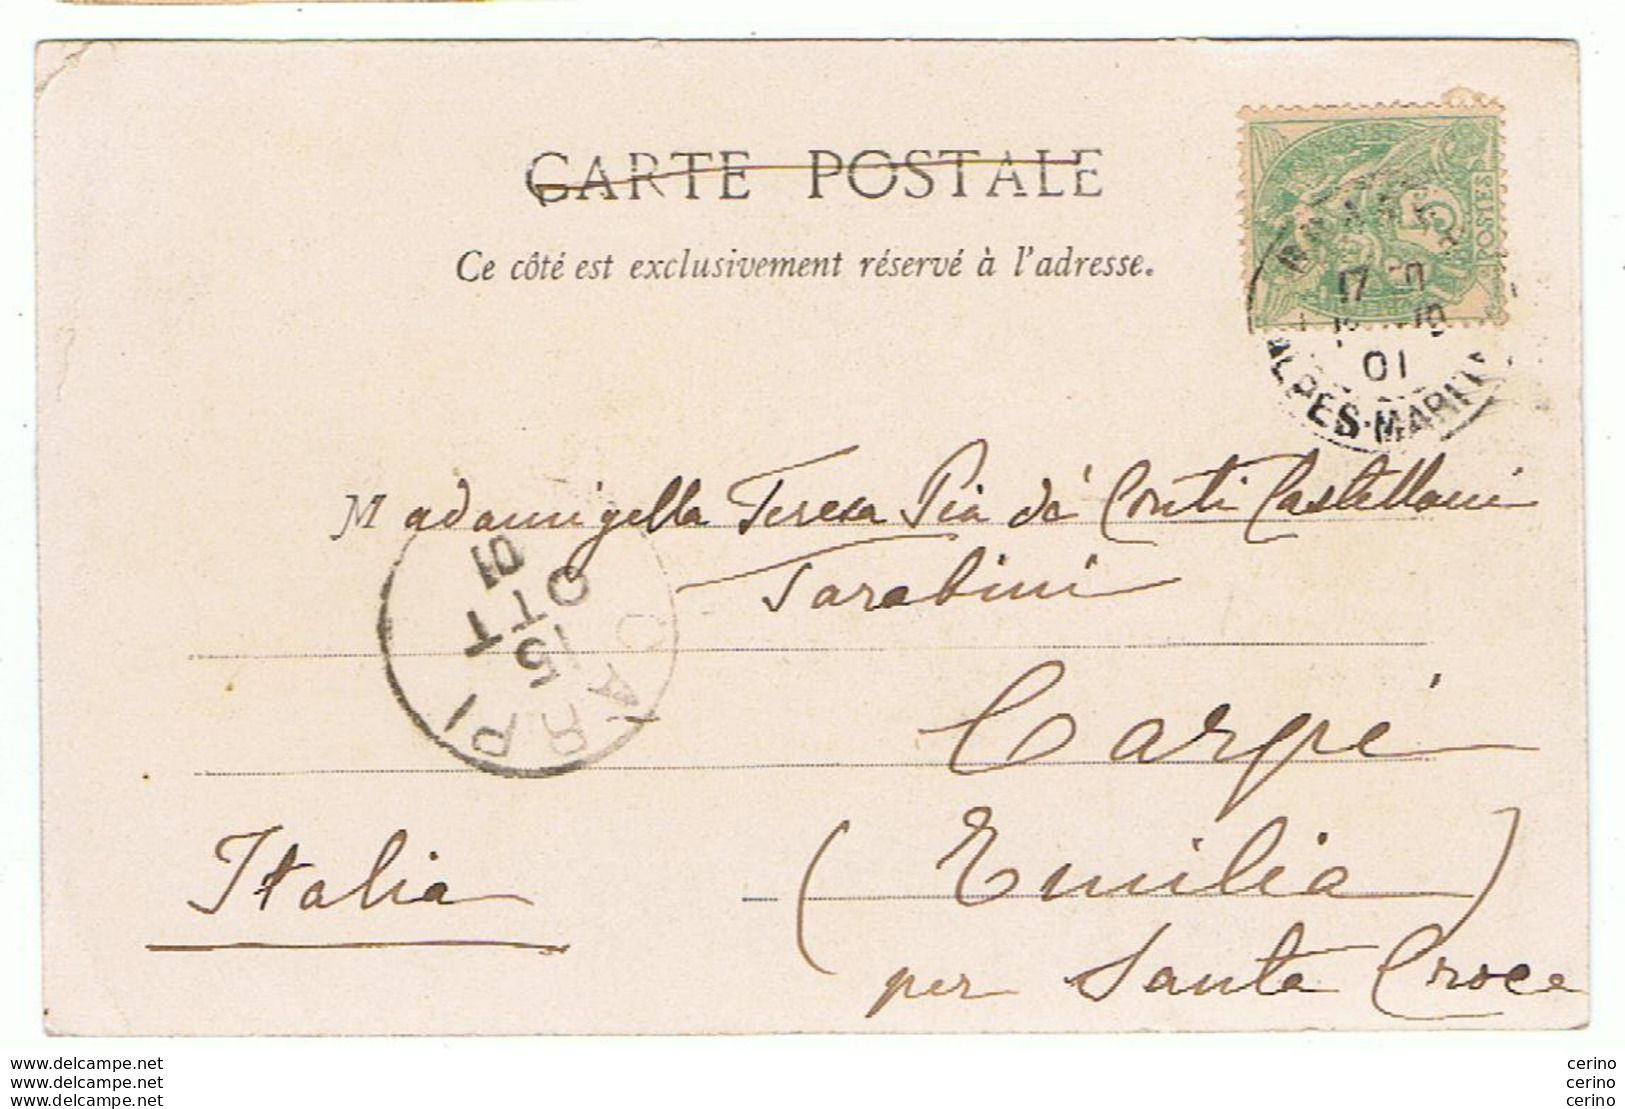 CARTE POSTALE
Ce côté est exclusivement réservé à l'adresse.
5
POSTES
17
01
ALPES-MARIT
Madamigella Teresa Pia dé Conti Castellani
Tarabini
CARPI
15
OTT
01
Carpi
(Emilia)
Italia
per Santa Croce
www.delcampe.net
www.delcampe.net
www.delcampe.net
cerino
cerino
cerino